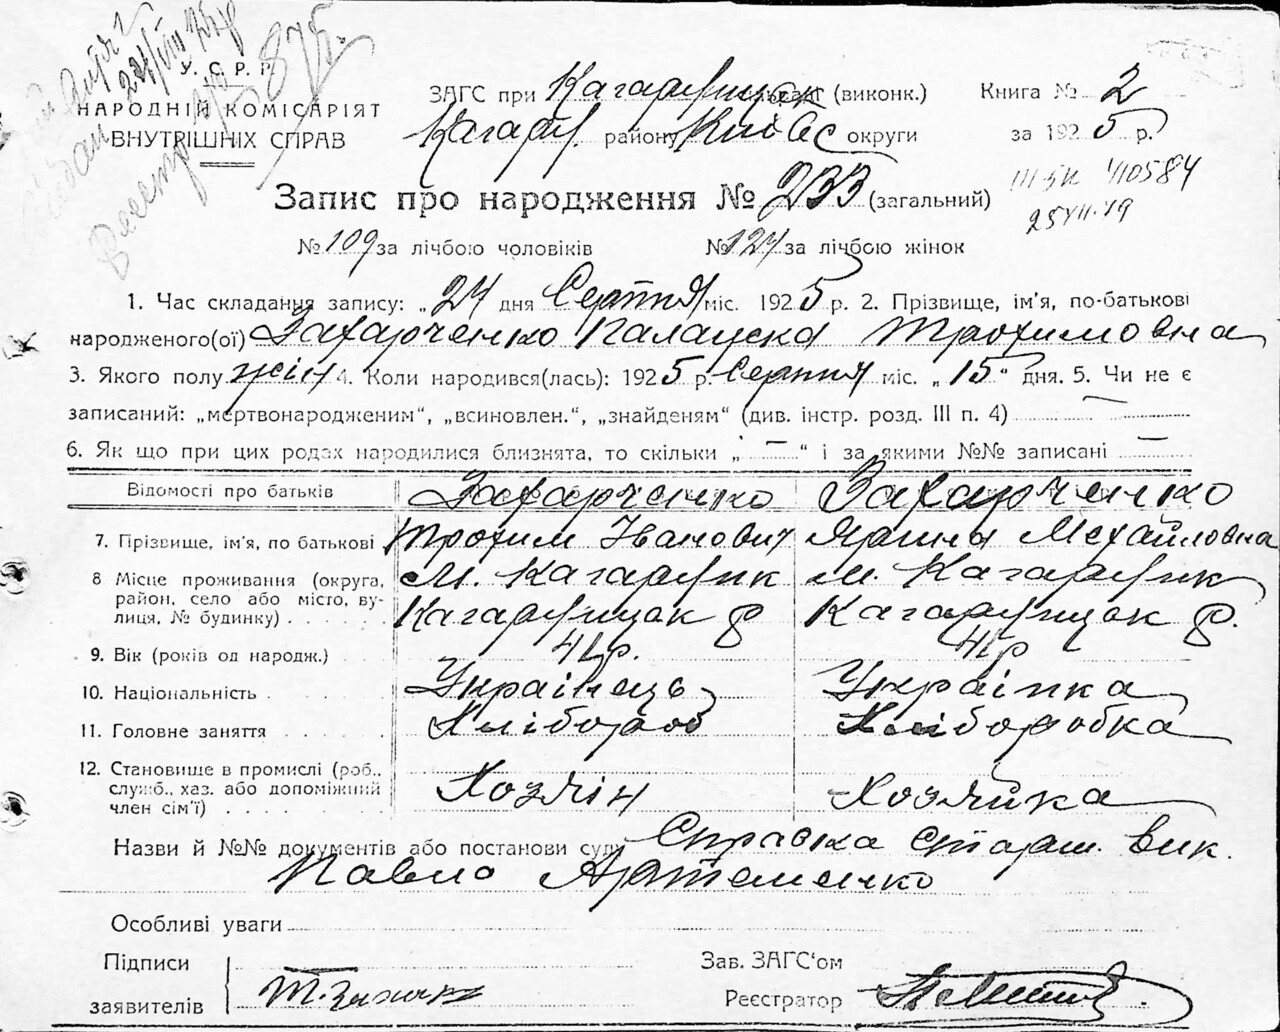 У. С. Р. Р.
НАРОДНІЙ КОМІСАРІЯТ
ВНУТРІШНІХ СПРАВ
875.
ЗАГС при Кагарлицьк (виконк.) Книга № 2
Кагарл. району Київс округи за 1925 р.
Запис про народження № 233 (загальний)
410584
№ 109 за лічбою чоловіків № 124 за лічбою жінок
1. Час складання запису: „24 дня Серпня міс. 1925 р. 2. Прізвище, ім'я, по-батькові
народженого(ої) Захарченко Палажка Трохимовна
3. Якого полу жін 4. Коли народився(лась): 1925 р. Серпня міс. „15" дня. 5. Чи не є
записаний: „мертвонародженим", „всиновлен.", „знайденям" (див. інстр. розд. III п. 4) —
6. Як що при цих родах народилися близнята, то скільки „ — " і за якими №№ записані —
Відомості про батьків Захарченко Захарченко
7. Прізвище, ім'я, по батькові Трохим Іванович Ярины Михайловна
8 Місце проживання (округа, м. Кагарлик м. Кагарлик
район, село або місто, ву-
лиця, № будинку) . . . . . Кагарлицьк р Кагарлицьк р.
9. Вік (років од народж.) . . 41 р. 41 р
10. Національність . . . . . Українець Українка
11. Головне заняття . . . . . Хлібороб Хлiборобка
12. Становище в промислі (роб.,
служб., хаз. або допоміжний
член сім'ї) . . . . . Хозяін Хозяйка
Назви й №№ документів або постанови суду Справка старш. вик.
Павло Артеменко
Особливі уваги
Підписи
заявителів
Зав. ЗАГС'ом
Реєстратор